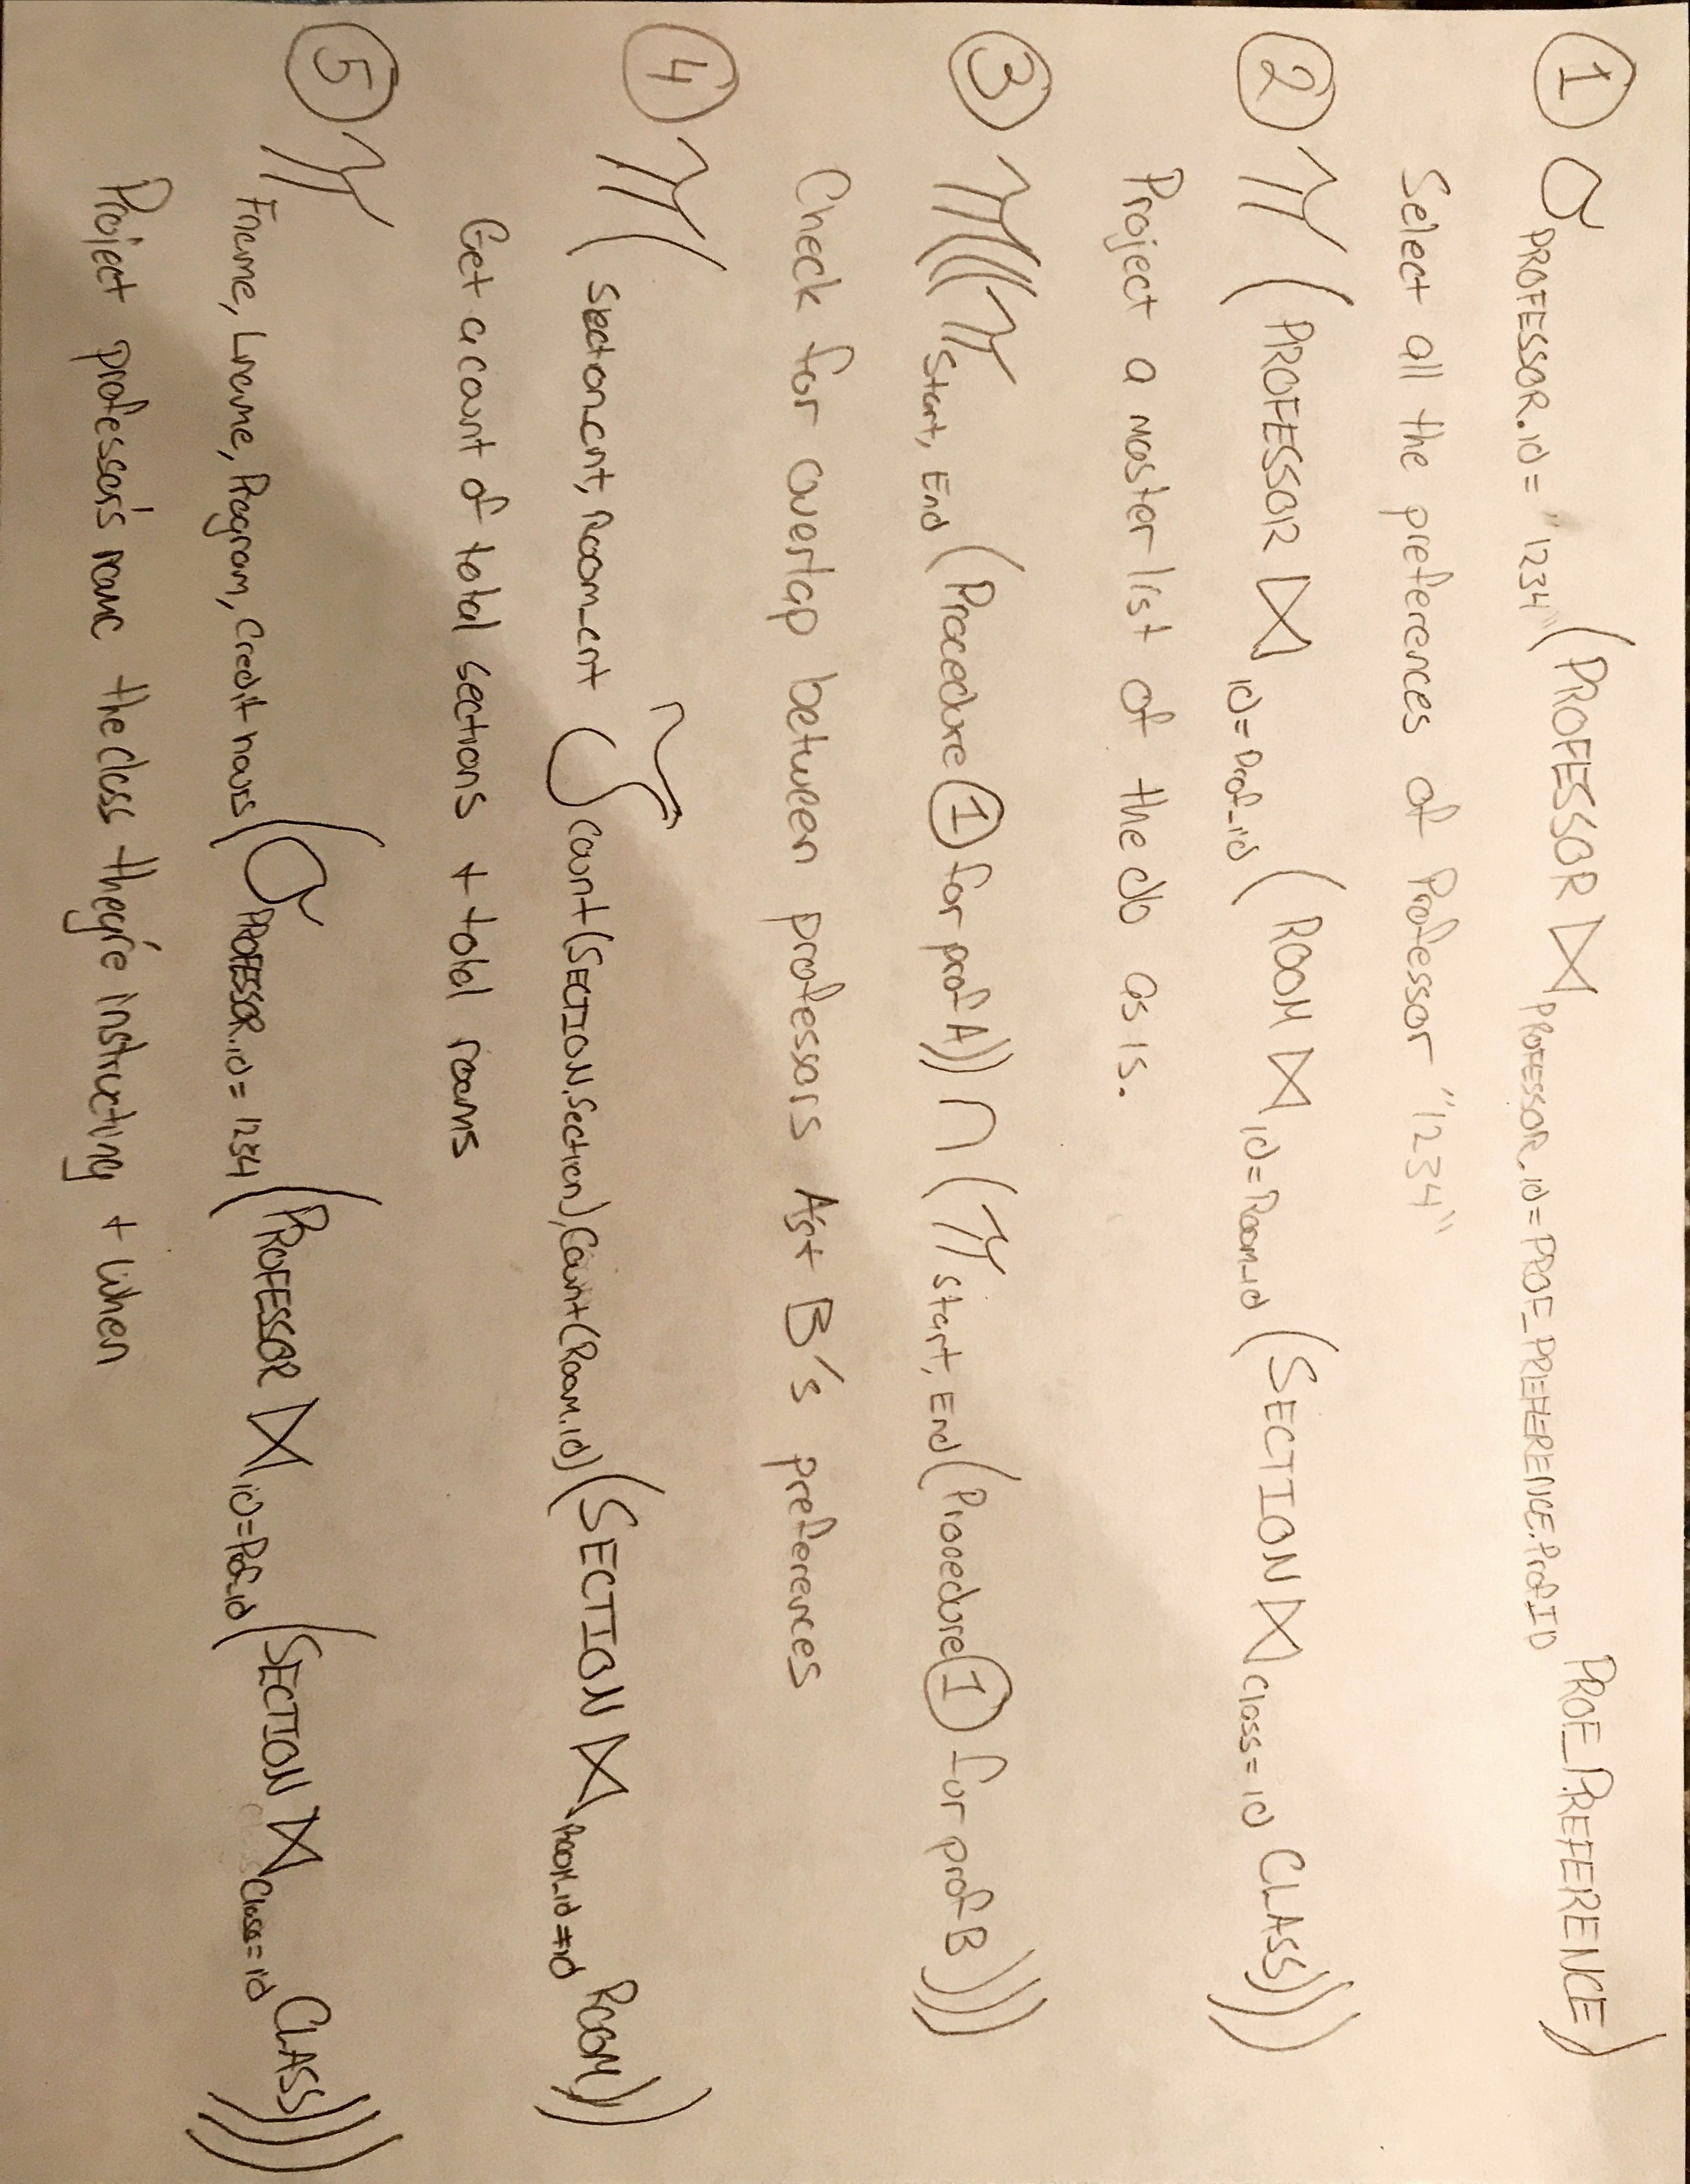 ① σ PROFESSOR.id = "1234" (PROFESSOR ⋈ PROFESSOR.id = PROF_PREFERENCE.ProfID PROF_PREFERENCE)
Select all the preferences of Professor "1234"
② π (PROFESSOR ⋈ id = Prof_id (ROOM ⋈ id = Room_id (SECTION ⋈ Class = id CLASS)))
Project a master list of the db as is.
③ π(((π Start, End (Procedure ① for prof A)) ∩ (π Start, End (Procedure ① for prof B)))
Check for overlap between professors A's + B's preferences
④ π( Section_cnt, Room_cnt ℑ Count(SECTION.Section), Count(Room.id) (SECTION ⋈ Room_id = id ROOM))
Get a count of total sections + total rooms
⑤ π Fname, Lname, Program, Credit hours (σ PROFESSOR.id = 1234 (PROFESSOR ⋈ id = Prof_id (SECTION ⋈ Class = id CLASS)))
Project professor's name the class they're instructing + when